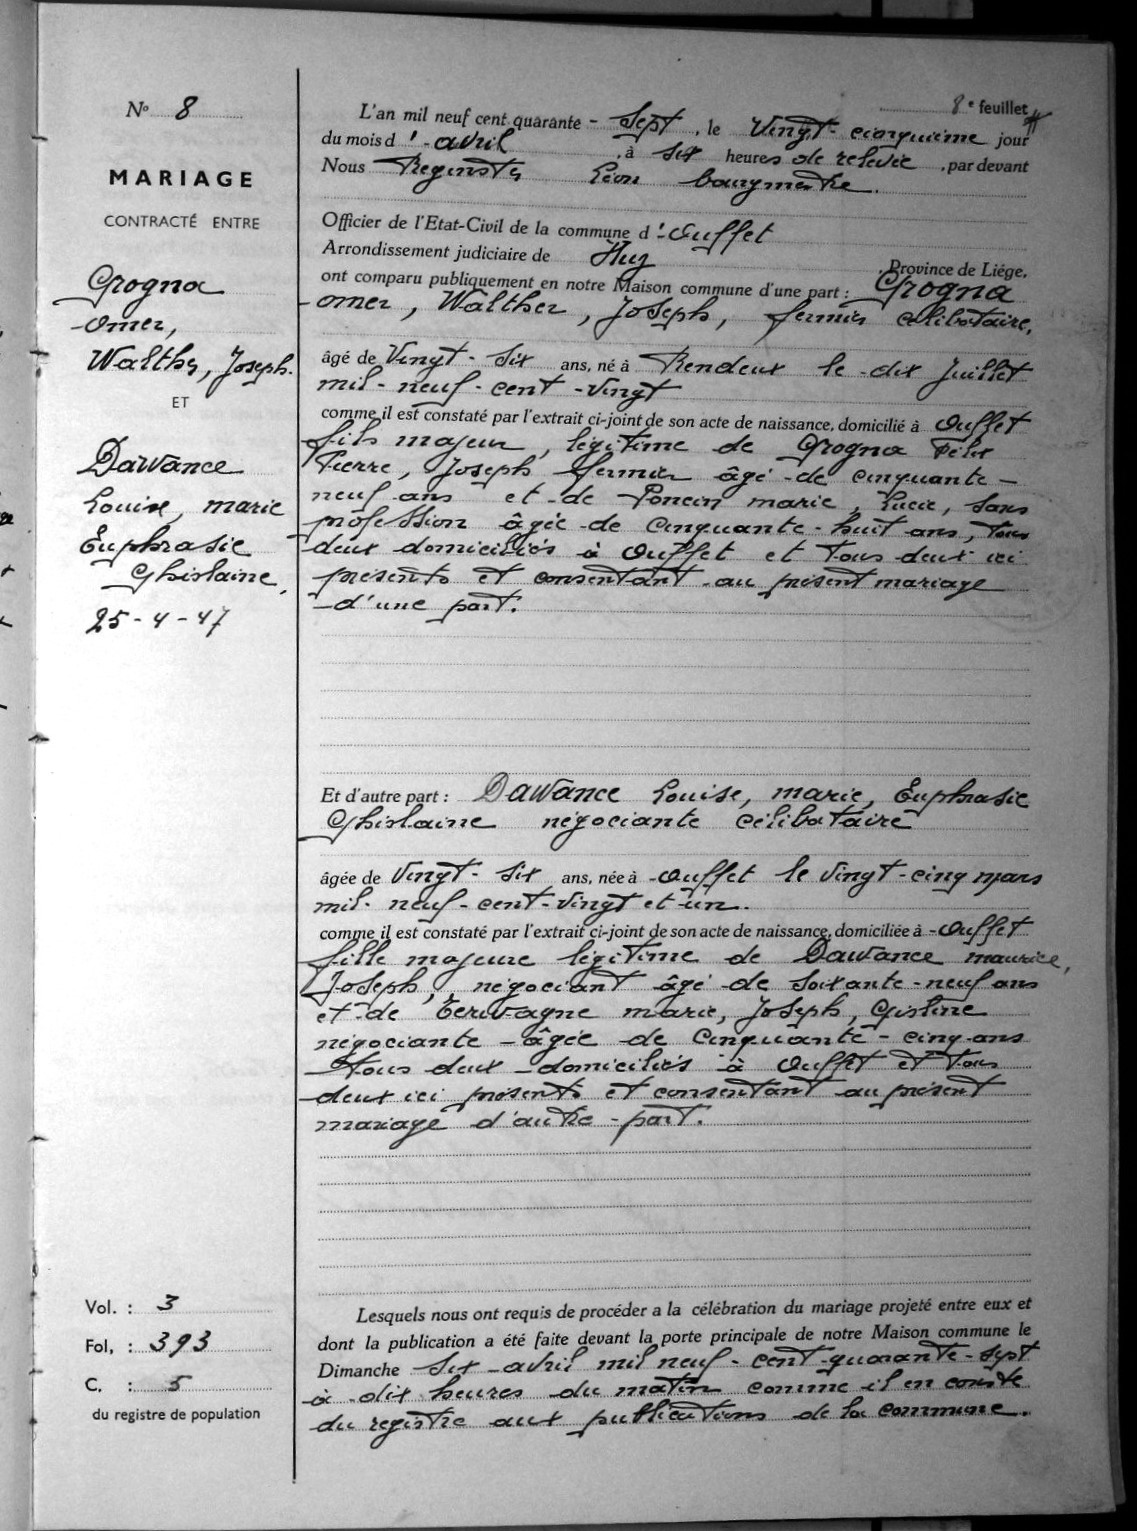 8e feuillet
N° 8
MARIAGE
CONTRACTÉ ENTRE
Grogna
Omer,
Walther, Joseph.
ET
Dawance
Louise, marie
Euphrasie
Ghislaine,
25-4-47
L'an mil neuf cent quarante - Sept, le Vingt-cinquième jour
du mois d'avril, à six heures de relevée, par devant
Nous Reginster Léon bourgmestre.
Officier de l'Etat-Civil de la commune d'Ouffet
Arrondissement judiciaire de Huy, Province de Liége,
ont comparu publiquement en notre Maison commune d'une part : Grogna
omer, Walther, Joseph, fermier célibataire,
âgé de Vingt-six ans, né à Rendeux le dix Juillet
mil-neuf-cent-vingt
comme il est constaté par l'extrait ci-joint de son acte de naissance, domicilié à Ouffet
fils majeur, légitime de Grogna Félix
Pierre, Joseph fermier âgé de cinquante-
neuf ans et de Poncin marie, Lucie, sans
profession âgée de cinquante-huit ans, tous
deux domiciliés à Ouffet et tous deux ici
présents et consentant au présent mariage
d'une part.
Et d'autre part : Dawance Louise, marie, Euphrasie
Ghislaine négociante célibataire
âgée de Vingt-six ans, née à Ouffet le vingt-cinq mars
mil-neuf-cent-vingt et un.
comme il est constaté par l'extrait ci-joint de son acte de naissance, domiciliée à Ouffet
fille majeure légitime de Dawance maurice,
Joseph, négociant âgé de soixante-neuf ans
et de marie, Joseph,
négociante âgée de cinquante-cinq ans
tous deux domiciliés à Ouffet et tous
deux ici présents et consentant au présent
mariage d'autre part.
Lesquels nous ont requis de procéder a la célébration du mariage projeté entre eux et
dont la publication a été faite devant la porte principale de notre Maison commune le
Dimanche six avril mil neuf-cent-quarante-sept
à dix heures du matin comme il en conste
du registre aux publications de la commune.
Vol. : 3
Fol, : 393
C. : 5
du registre de population